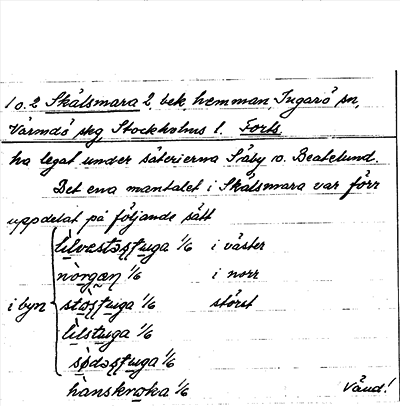 1 o. 2 Skälsmara 2, bek. hemman, Ingarö sn,
Värmdö skg, Stockholms l. Forts.
ha legat under säterierna Säby o. Beatelund.
Det ena mantalet i Skälsmara var förr
uppdelat på följande sätt
lìlvestəsʃtuga 1/6 i väster
nòrgaɳ 1/6 i norr
i byn stəsʃtuga 1/6 störst
lìlstuga 1/6
sø̀dəsʃtuga 1/6
hànskroka 1/6 Vänd!